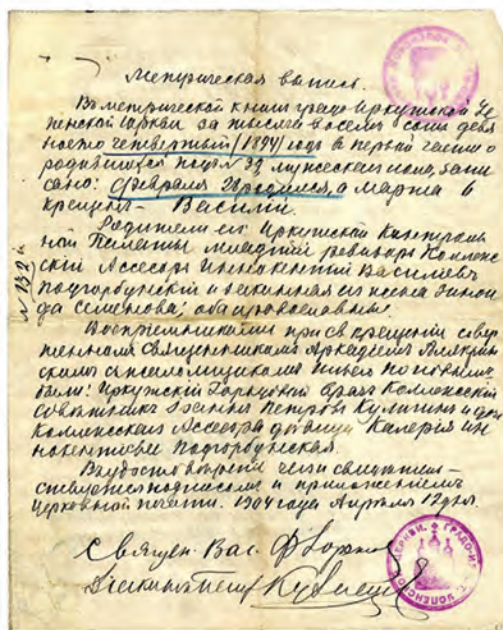 Метрическая выпись.
Въ метрической книге градо Иркутской Ус
пенской церкви за тысяча восемь сотъ девя
носто четвертый /1894/ годъ въ первой части о
родившихся подъ № 32 мужескаго пола, запи
сано: Февраля 26 родился, а Марта 6
крещенъ – Василій.
Родители его: Иркутской Контроль
ной Палаты младшій ревизоръ Коллеж
скій Ассесоръ Иннокентій Васильевъ
Подгорбунскій и законная его жена Зинаи
да Семенова; оба православные.
Воспріемниками при св. крещеніи совер
шенномъ священникомъ Аркадіемъ
съ псаломщикомъ
были: Иркутскій Городовой врачъ Коллежскій
Совѣтникъ Іоаннъ Петровъ Кулигинъ и дочь
Коллежскаго Ассесора дѣвица Калерія Ин
нокентьева Подгорбунская.
Въ удостовѣреніи чего свидѣтель
ствуется подписомъ и приложеніемъ
церковной печати. 1904 года Апреля 12 дня.
Священ. Вас. Флоренс
№ 132й